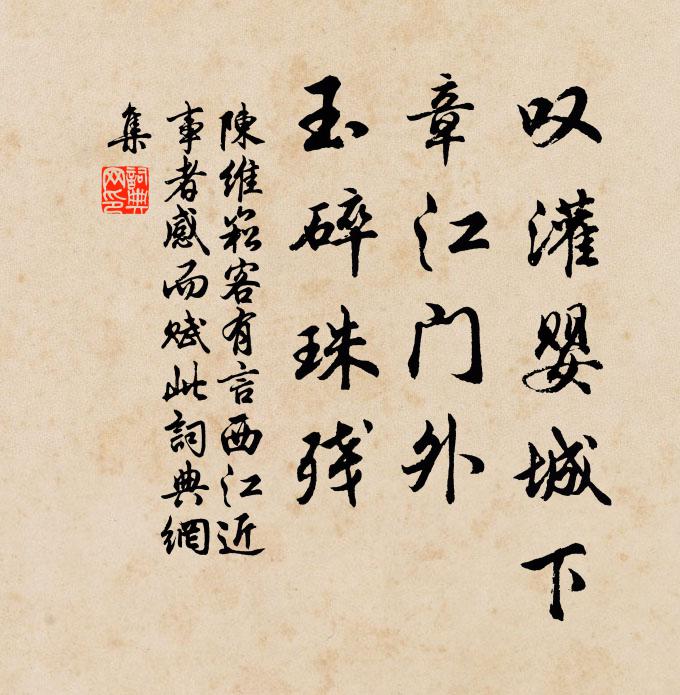 叹灌婴城下
章江门外
玉碎珠残
陳維崧客有言西江近
事者感而赋此詞典網
集
詞典
网印